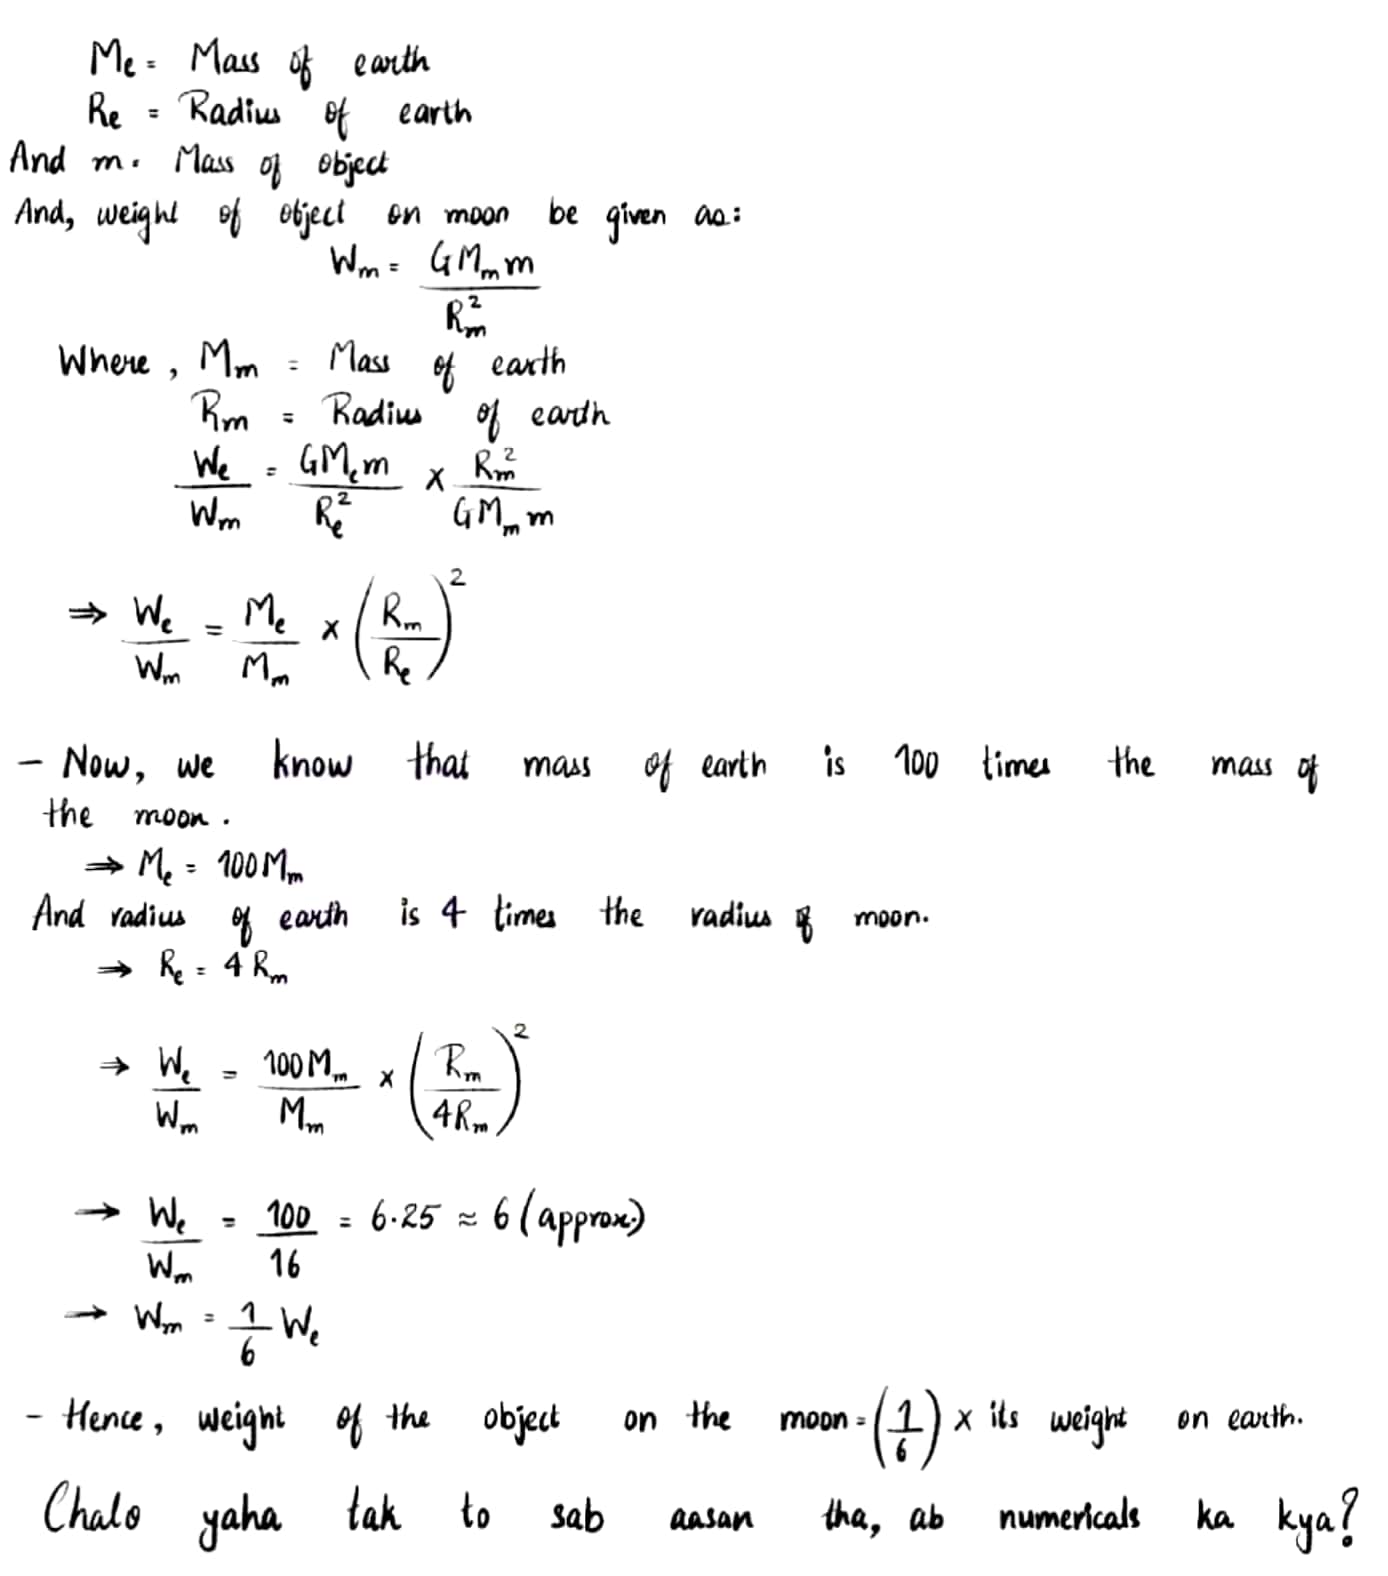 Me = Mass of earth
Re = Radius of earth
And m = Mass of object
And, weight of object on moon be given as:
Wm = GMm m / Rm²
Where, Mm = Mass of earth
Rm = Radius of earth
We/Wm = GMe m / Re² × Rm² / GMm m
⇒ We/Wm = Me/Mm × (Rm/Re)²
- Now, we know that mass of earth is 100 times the mass of
the moon.
⇒ Me = 100Mm
And radius of earth is 4 times the radius of moon.
⇒ Re = 4Rm
⇒ We/Wm = 100Mm/Mm × (Rm/4Rm)²
→ We/Wm = 100/16 = 6.25 ≈ 6 (approx.)
→ Wm = 1/6 We
- Hence, weight of the object on the moon = (1/6) × its weight on earth.
Chalo yaha tak to sab aasan tha, ab numericals ka kya?